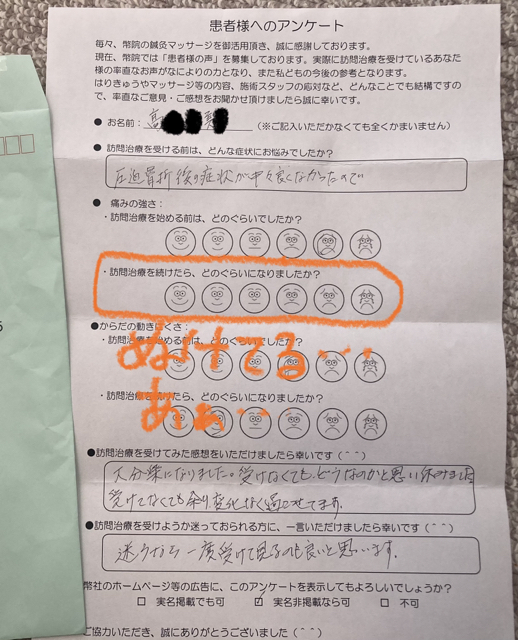 患者様へのアンケート
毎々、幣院の鍼灸マッサージを御活用頂き、誠に感謝しております。
現在、幣院では「患者様の声」を募集しております。実際に訪問治療を受けているあなた
様の率直なお声がなにより力となり、また私どもの今後の参考となります。
はりきゅうやマッサージ等の内容、施術スタッフの応対など、どんなことでも結構ですの
で、率直なご意見・ご感想をお聞かせ頂けましたら誠に幸いです。
● お名前： （※ご記入いただかなくても全くかまいません）
● 訪問治療を受ける前は、どんな症状にお悩みでしたか？
圧迫骨折後の症状が中々良くなかったので
● 痛みの強さ：
・訪問治療を始める前は、どのぐらいでしたか？
・訪問治療を続けたら、どのぐらいになりましたか？
●からだの動きにくさ：
・訪問治療を始める前は、どのぐらいでしたか？
ぬけてる・・・
・訪問治療を続けたら、どのぐらいになりましたか？
あぁ・・
●訪問治療を受けてみた感想をいただけましたら幸いです（＾＾）
大分楽になりました。受けなくてもどうなのかと思い休みました
受けてなくても余り変化なく過ごせてます。
●訪問治療を受けようか迷っておられる方に、一言いただけましたら幸いです（＾＾）
迷うなら一度受けて見るのも良いと思います。
弊社のホームページ等の広告に、このアンケートを表示してもよろしいでしょうか？
□ 実名掲載でも可 ☑ 実名非掲載なら可 □ 不可
ご協力いただき、誠にありがとうございました（＾＾）